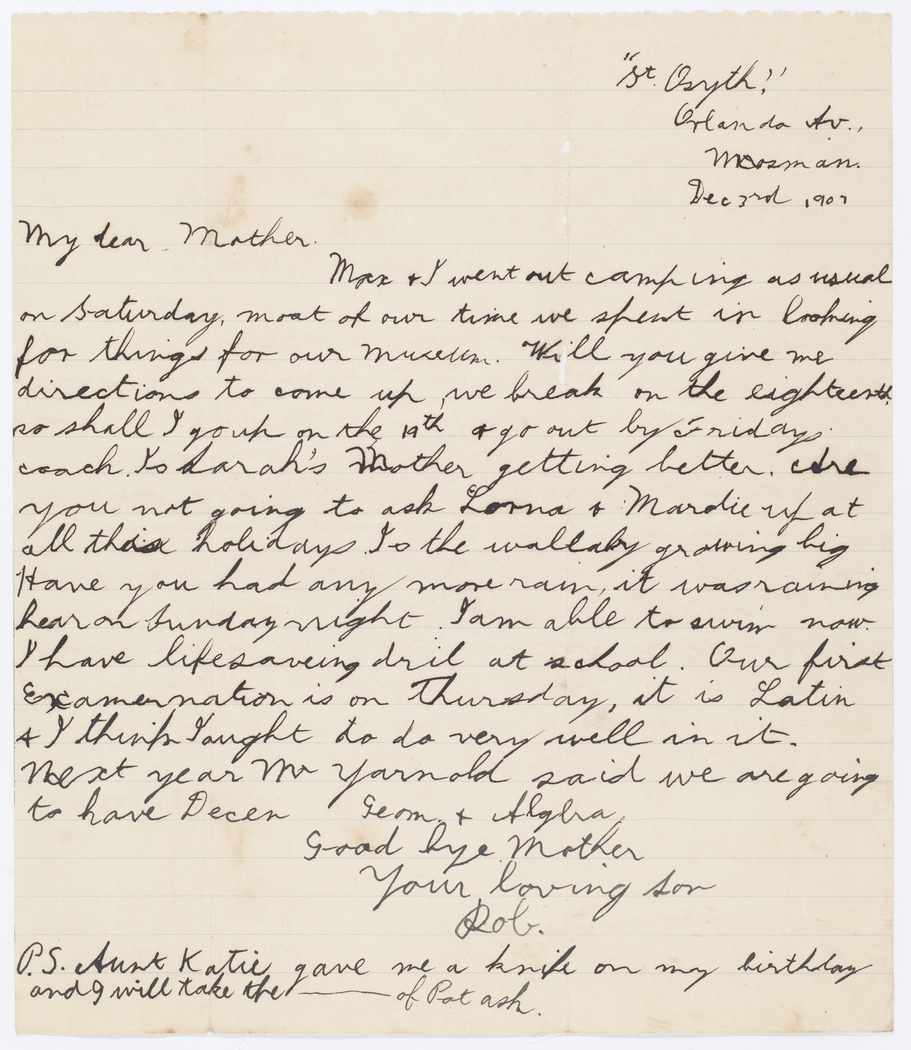 "St. Osyth!"
Orlando Av.,
Mosman.
Dec 3rd 1907
My dear Mother.
Max & I went out camping as usual
on Saturday, most of our time we spent in looking
for things for our museum. Will you give me
directions to come up, we break on the eighteenth,
so shall I go up on the 19th & go out by Fridays
coach. Is Sarah's Mother getting better. Are
you not going to ask Lorna & Mardie up at
all this holidays. Is the wallaby growing big
Have you had any more rain, it was raining
hear on Sunday night. I am able to swim now.
I have lifesaveing dril at school. Our first
Examernation is on Thursday, it is Latin
& I think I aught to do very well in it.
Next year Mr Yarnold said we are going
to have Decen Geom. & Alglra,
Good bye Mother
Your loving son
Rob.
P.S. Aunt Katie gave me a knife on my birthday
and I will take the —— of Potash.